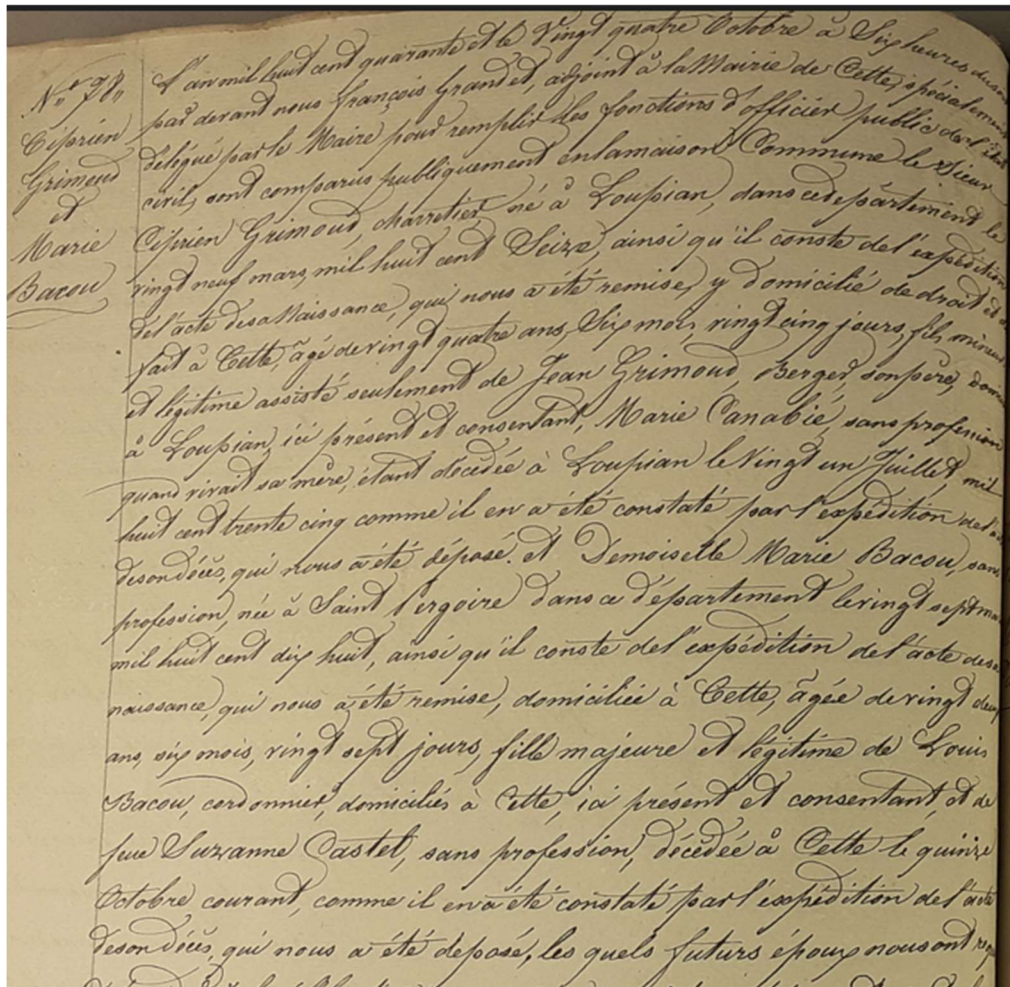 N.º 78.
Ciprien
Grimoud
et
Marie
Bacou
L'an mil huit cent quarante et le Vingt quatre Octobre à Six heures du soir
par devant nous françois Grand et, adjoint à la Mairie de Cette, spécialement
délégué par le Maire pour remplir les fonctions d'officier public de l'état
civil, sont comparus publiquement en la maison Commune le Sieur
Ciprien Grimoud, charretier, né à Loupian, dans ce département le
vingt neuf mars mil huit cent Seize, ainsi qu'il conste de l'expédition
de l'acte de sa Naissance, qui nous a été remise, y domicilié de droit et de
fait à Cette, âgé de vingt quatre ans, Six mois, vingt cinq jours, fils mineur
et légitime assisté seulement de Jean Grimoud, Berger, son père,
à Loupian, ici présent et consentant, Marie Canabié, sans profession
quand vivait sa mère, étant décédée à Loupian le Vingt un Juillet, mil
huit cent trente cinq comme il en a été constaté par l'expédition de l'acte
de son décès, qui nous a été déposé. et Demoiselle Marie Bacou, sans
profession, née à Saint Pergoire dans ce département le vingt sept mars
mil huit cent dix huit, ainsi qu'il conste de l'expédition de l'acte de sa
naissance, qui nous a été remise, domiciliée à Cette, âgée de vingt deux
ans, six mois, vingt sept jours, fille majeure et légitime de Louis
Bacou, cordonnier, domiciliés à Cette, ici présent et consentant, et de
feue Suzanne Castel, sans profession, décédée à Cette le quinze
Octobre courant, comme il en a été constaté par l'expédition de l'acte
de son décès, qui nous a été déposé, les quels futurs époux nous ont